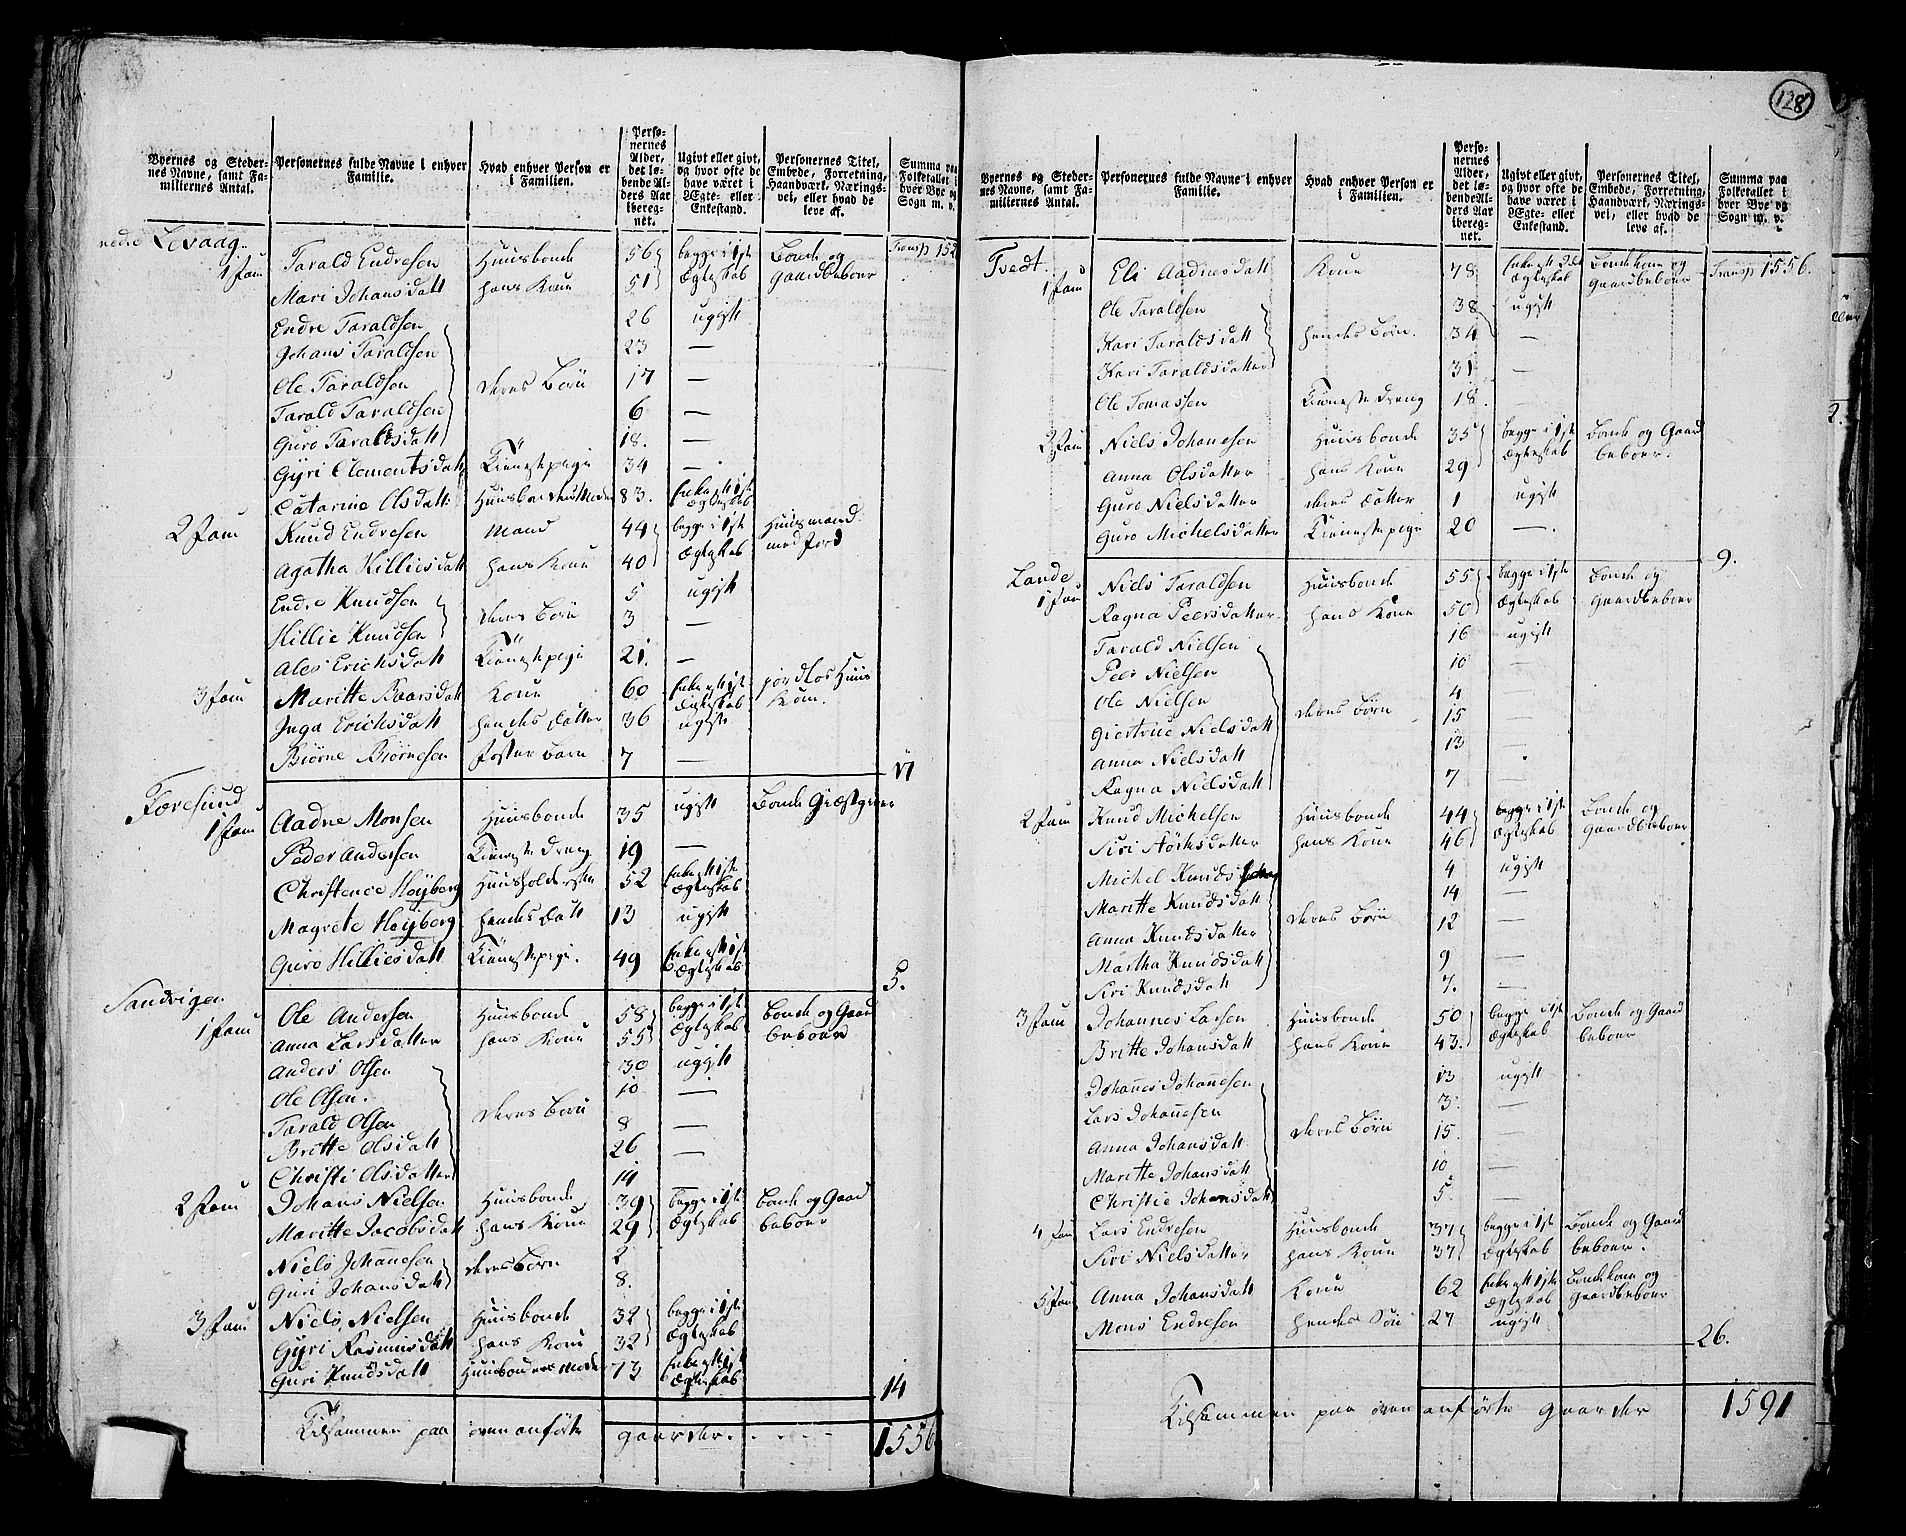 128
Byernes og Stedernes Navne, samt Familiernes Antal.
Personernes fulde Navne i enhver Familie.
Hvad enhver Person er i Familien.
Personernes Alder, det løbende Alders Aar iberegnet.
Ugivt eller givt, og hvor ofte de have været i Ægte- eller Enkestand.
Personernes Titel, Embede, Forretning, Haandværk, Næringsvei, eller hvad de leve af.
Summa paa Folketallet i hver Bye og Sogn m. v.
nedre Levaag. 1 Fam Tarald Endresen Huusbonde 56 begge i 1ste Bonde og Transp 152
Mari Johansdatt hans Kone 51 Ægteskab Gaardbeboer
Endre Taraldsen 26 ugift
Johans Taraldsen 23 —
Ole Taraldsen deres Børn 17 —
Tarald Taraldsen 6 —
Guro Taraldsdatt 18. —
Gyri Clementsdatt Tienestepige 34 —
Catarine Olsdatt Huusbondens Moder 83. Enke efter 1ste Ægteskab
2 Fam Knud Endresen Mand 44 begge i 1ste Huusmand
Agatha Killiesdatt hans Kone 40 Ægteskab med Jord
Endre Knudsen 5 ugift
Killie Knudsen deres Børn 3 —
Ales Erichsdatt Tienestepige 21. —
3 Fam Maritte Baarsdatt Kone 60 Enke efter 1ste Ægteskab jordløs Huus
Inga Erichsdatt hendes Datter 36 ugift Kone.
Biørne Biørnesen Foster Barn 7 —
17
Foresund 1 Fam Aadne Monsen Huusbonde 35 ugift Bonde Giæstgiver
Peder Andersen Tieneste Dreng 19 —
Christence Høyberg Huusholderske 52 Enke efter 1ste Ægteskab
Magrete Høyberg hendes Datt 13 ugift
Guro Killiesdatt Tienestepige. 49 Enke efter 1ste Ægteskab
5.
Sandvigen 1 Fam Ole Andersen Huusbonde 58 begge i 1ste Bonde og Gaard
Anna Larsdatter hans Kone 55 Ægteskab beboer
Anders Olsen 30 ugift
Ole Olsen. 10 —
Tarald Olsen deres Børn 8 —
Britte Olsdatt 26 —
Christi Olsdatter 14 —
2 Fam Johans Nielsen Huusbonde 39 begge i 1ste Bonde og Gaard
Maritte Jacobsdatt hans Kone 29 Ægteskab beboer
Niels Johannesen deres Børn 2
Guri Johansdatt 8.
3 Fam Niels Nielsen Huusbonde 32 begge i 1ste
Gyri Rasmusdatt hans Kone 32 Ægteskab
Guri Knudsdatt Huusbondens Moder 73 Enke efter 1ste Ægteskab
14
Tilsammen paa ovenanførte gaarder. 1556
Byernes og Stedernes Navne, samt Familiernes Antal.
Personernes fulde Navne i enhver Familie.
Hvad enhver Person er i Familien.
Personernes Alder, det løbende Alders Aar iberegnet.
Ugivt eller givt, og hvor ofte de have været i Ægte- eller Enkestand.
Personernes Titel, Embede, Forretning, Haandværk, Næringsvei, eller hvad de leve af.
Summa paa Folketallet i hver Bye og Sogn m. v.
Tvedt. 1 Fam Eli Aadnesdatt Kone 78 Enke efter 2det Ægteskab Bondekone og Gaardbeboer Transp 1556.
Ole Taraldsen 38 ugift
Kari Taraldsdatt hendes Børn. 34 —
Kari Taraldsdatter 31 —
Ole Tomassen Tieneste Dreng 18.
2 Fam Niels Johanesen Huusbonde 35 begge i 1ste Bonde og Gaard
Anna Olsdatter hans Kone 29 Ægteskab beboer.
Guro Nielsdatter deres Datter 1 ugift
Guro Michelsdatter Tienestepige 20 —.
9.
Lande 1 Fam Niels Taraldsen Huusbonde 55 begge i 1ste Bonde og
Ragna Peersdatter hans Kone 50 Ægteskab Gaardbeboer
Tarald Nielsen 16 ugift
Peer Nielsen 10 —
Ole Nielsen 4 —
Giertrue Nielsdatt deres Børn 15 —
Anna Nielsdatt 13 —
Ragna Nielsdatt 7 —
2 Fam Knud Michelsen Huusbonde 44 begge i 1ste Bonde og
Siri Størksdatter hans Kone 46 Ægteskab Gaardbeboer
Michel Knuds 4 ugift
Maritte Knudsdatt 14 —
Anna Knudsdatter deres Børn 12 —
Martha Knudsdatt 9 —
Siri Knudsdatt 7. —
3 Fam Johannes Larsen Huusbonde 50 begge i 1ste Bonde og Gaard
Britte Johansdatt hans Kone 43. Ægteskab beboer
Johannes Johannesen 13 ugift
Lars Johannesen 3. —
Anna Johansdatt deres Børn 15. —
Maritte Johansdatt 10 —
Christie Johansdatt 5. —
4 Fam Lars Endresen Huusbonde 37 begge i 1ste Bonde og Gaard
Siri Nielsdatter hans Kone 37 Ægteskab beboer.
5 Fam Anna Johansdatt Kone 62 Enke efter 1ste Ægteskab Bondekone og Gaardbeboer
Mons Endresen hendes Søn 27 ugift
26.
Tilsammen paa ovenanførte gaarder 1591